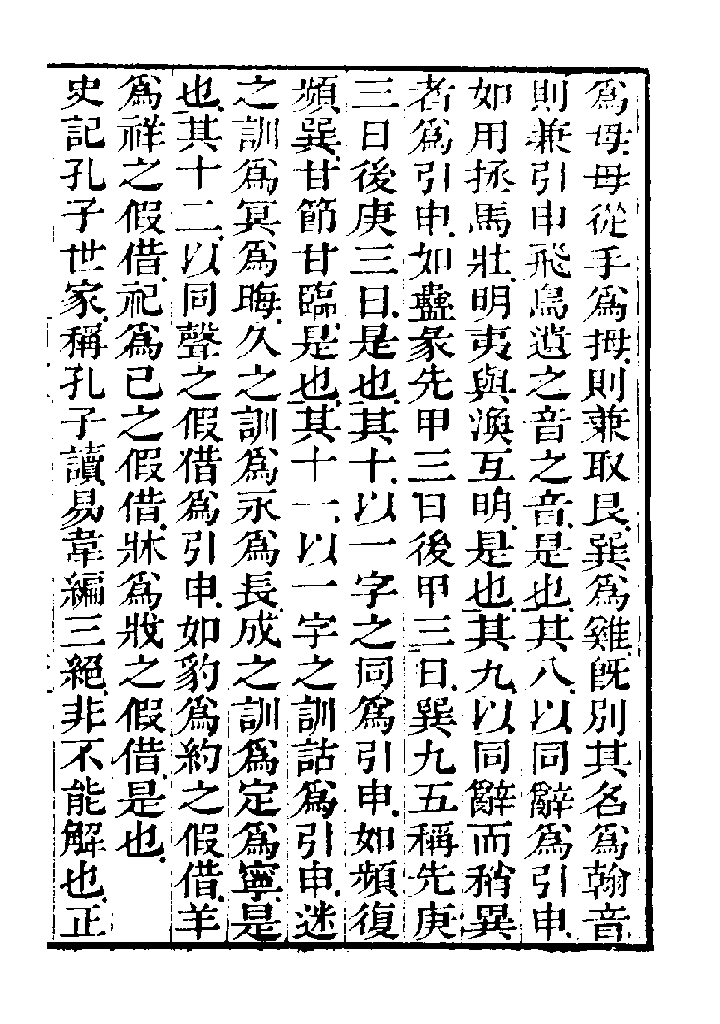 爲母母從手爲拇則兼取艮巽爲雞旣別其名爲翰音
則兼引申飛鳥遺之音之音是也其八以同辭爲引申
如用拯馬壯明夷與渙互明是也其九以同辭而稍異
者爲引申如蠱彖先甲三日後甲三日巽九五稱先庚
三日後庚三日是也其十以一字之同爲引申如頻復
頻巽甘節甘臨是也其十一以一字之訓詁爲引申迷
之訓爲冥爲晦久之訓爲永爲長成之訓爲定爲寧是
也其十二以同聲之假借爲引申如豹爲約之假借羊
爲祥之假借祀爲已之假借牀爲戕之假借是也
史記孔子世家稱孔子讀易韋編三絕非不能解也正